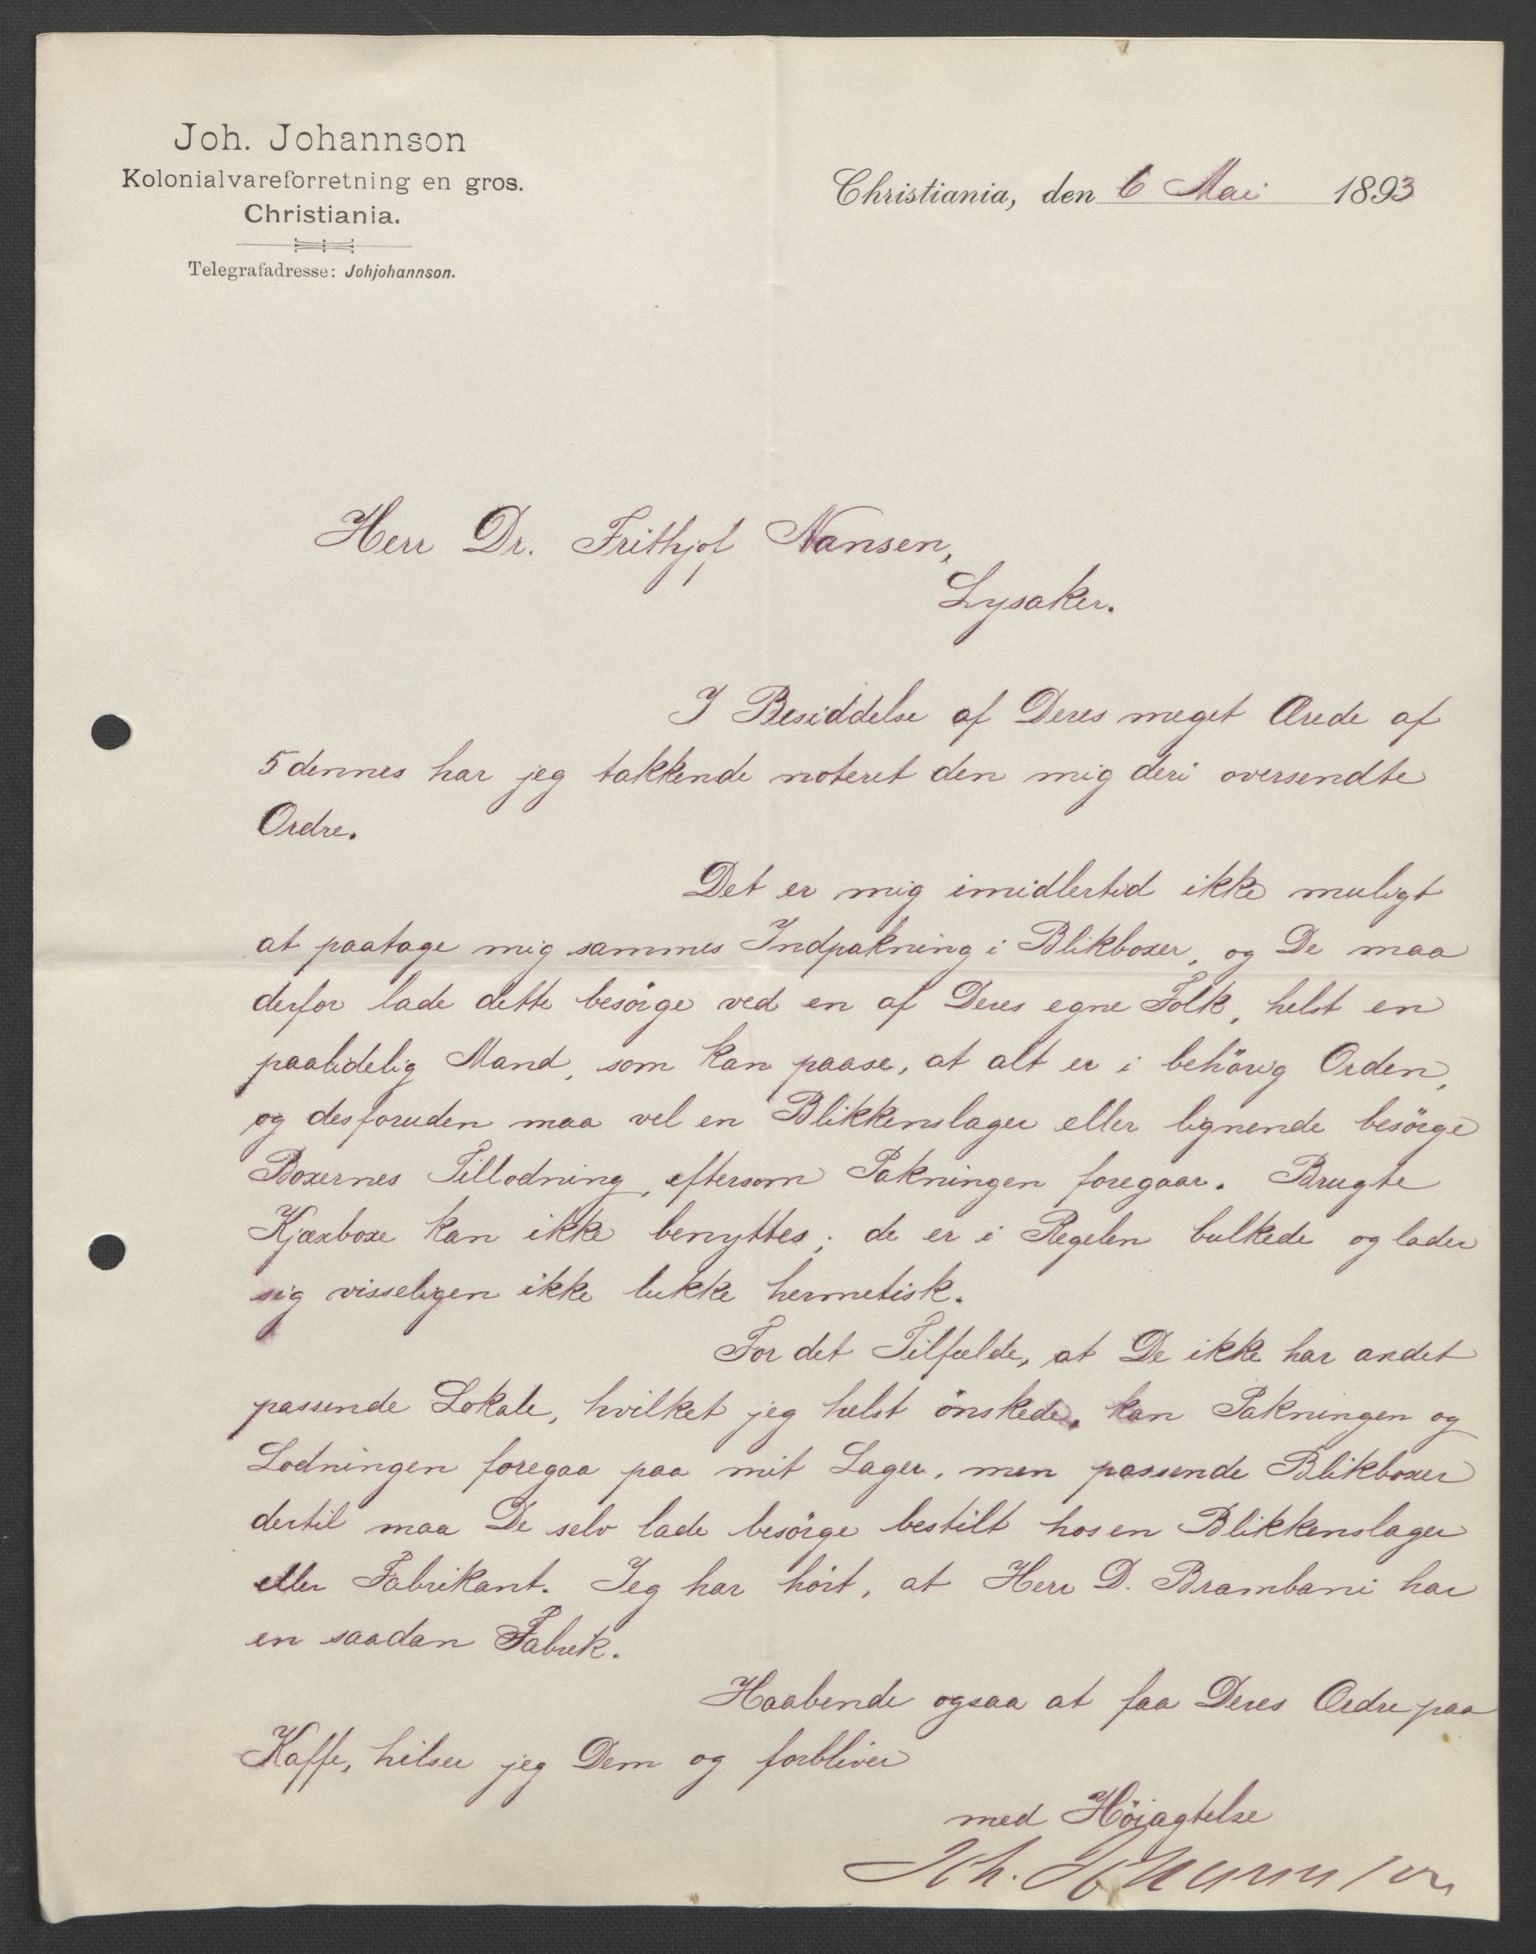 Joh. Johannson
Kolonialvareforretning en gros.
Christiania.
Telegrafadresse: Johjohannson.
Christiania, den 6 Mai 1893
Herr Dr. Frithjof Nansen,
Lysaker.
I Besiddelse af Deres meget Ærede af
5 dennes har jeg takkende noteret den mig deri oversendte
Ordre.
Det er mig imidlertid ikke muligt
at paatage mig sammes Indpakning i Blikboxer, og De maa
derfor lade dette besörge ved en af Deres egne Folk, helst en
paalidelig Mand, som kan paase, at alt er i behörig Orden,
og desforuden maa vel en Blikkenslager eller lignende besörge
Boxernes Tillodning, eftersom Pakningen foregaar. Brugte
Kjæxboxe kan ikke benyttes; de er i Regelen bulkede og lader
sig visseligen ikke lukke hermetisk.
For det Tilfælde, at De ikke har andet
passende Lokale, hvilket jeg helst önskede, kan Pakningen og
Lodningen foregaa paa mit Lager, men passende Blikboxer
dertil maa De selv lade besörge bestilt hos en Blikkenslager
eller Fabrikant. Jeg har hört, at Herr D. Brambani har
en saadan Fabrik.
Haabende ogsaa at faa Deres Ordre paa
Kaffe, hilser jeg Dem og forbliver
med Höiagtelse
Joh. Johannson